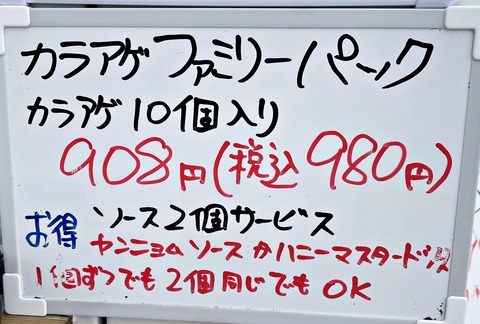 カラアゲファミリーパック
カラアゲ10個入り
908円(税込980円)
お得 ソース2個サービス
ヤンニョムソースかハニーマスタードソース
1個ずつでも2個同じでもOK